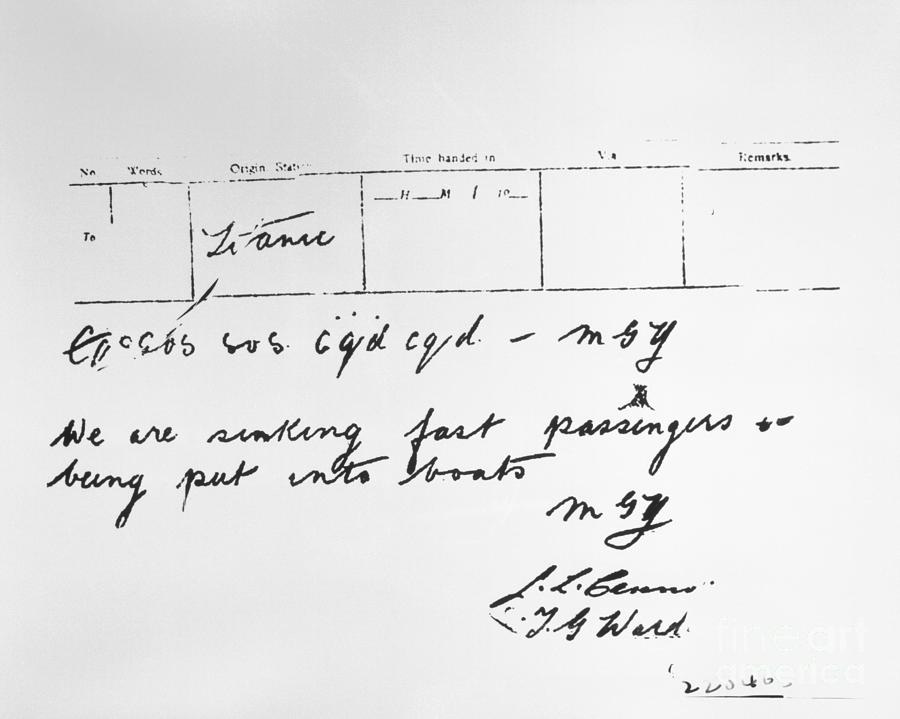 No Words Origin Station Time handed in Via Remarks
H M 19
To
Titanic
SOS SOS. cqd cqd. - MGY
We are sinking fast passengers
being put into boats
MGY
T. G Ward.
fine art
america